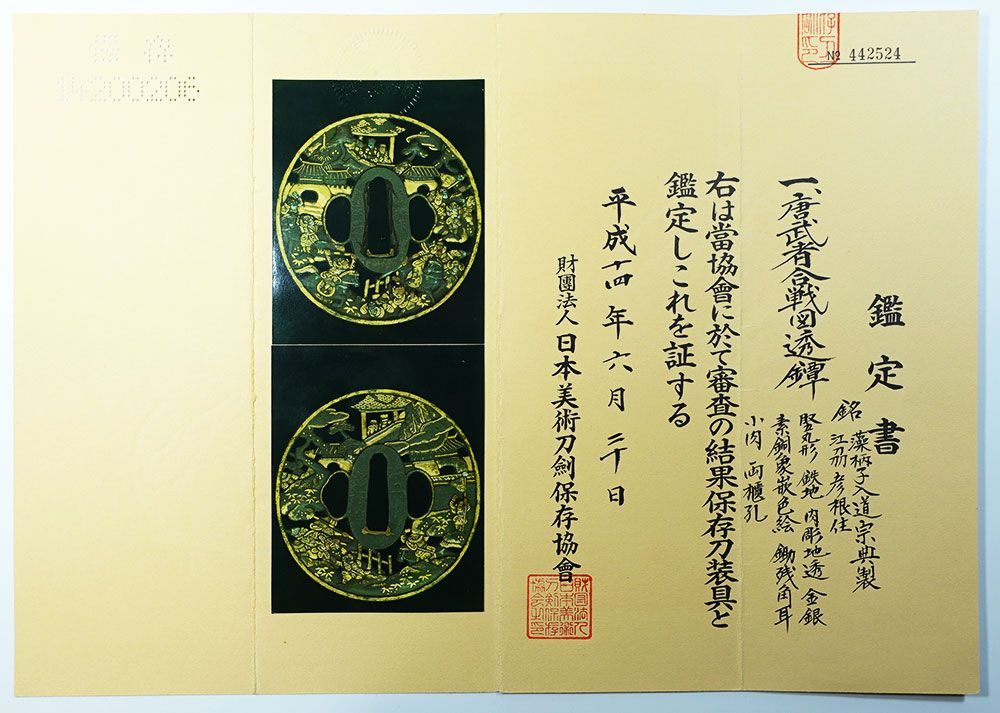 鑑定書
№ 442524
一、唐武者合戦図透鐔
銘 藻柄子入道宗典製
江刕彦根住
竪丸形 鉄地 肉彫地透 金銀
素銅象嵌色絵 鋤残角耳
小肉 両櫃孔
右は當協會に於て審査の結果保存刀装具と
鑑定しこれを証する
平成十四年六月二十日
財團法人日本美術刀劍保存協會
保存
14200206